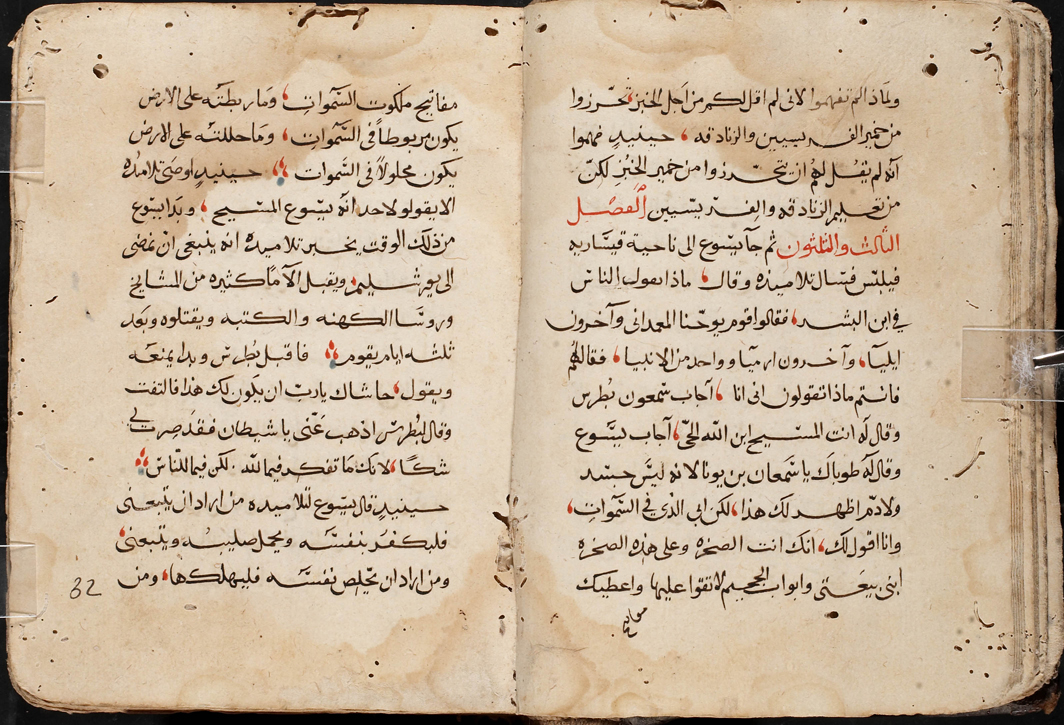 ولماذا لم تفهموا لانى لم اقل لكم من اجل الخبز تحرزوا
من خمير الفريسيين والزنادقه حينيدٍ فهموا
انه لم يقُل لهم ان يتحرزوا من خمير الخبُز لكن
من تعليم الزنادقه والفريسيين الفصل
الثالث والثلثون ثم جا يسوع الى ناحية قيساريه
فيلبّس فسال تلاميذه وقال ماذا تقول الناس
فى ابن البشر فقالوا قوم يوحنا المعمدانى وآخرون
ايليا وآخرون ارميا وواحد من الانبيا فقال لهم
فانتم ماذا تقولون انى انا آجاب سمعون بُطرس
وقال له انت المسيح ابن الله الحىّ آجاب يسوع
وقال له طوباك ياسمعان بن يونا لانه ليس جسد
ولادم اظهر لك هذا لكن ابى الذى فى السموات
وانا اقول لك انك انت الصخره وعلى هذه الصخره
ابنى بيعتى وابواب الجحيم لاتقوا عليها واعطيك
مفاتيح
مفاتيح ملكوت السموات وما ربطتَه على الارض
يكون مربوطاً فى السموات وما حللته على الارض
يكون محلولاً فى السموات حينيدٍ اوصى تلامده
الا يقولو لاحد انه يسوع المسيح وبدا يسوع
من ذلك الوقت يخبر تلاميده انه ينبغى ان يمضى
الى يورشليم ويقبل الآماً كثيره من المشايخ
وروسا الكهنه والكتبه ويقتلوه وبعد
ثلثه ايام يقوم فاقبل بُطرس وبدا يمنعه
ويقول حاشاك يارب ان يكون لك هذا فالتفت
وقال لبُطرس اذهب عنّى ياشيطان فقد صرت لى
شكا لانك ما تفكر فيما لله لكن فيما للناس
حينيدٍ قال يسوع لتلاميده من اراد ان يتبعنى
فليكفر بنفسه ويحمل صليبه ويتبعنى
ومن اراد ان يخلص نفسه فليهلكها ومن
32